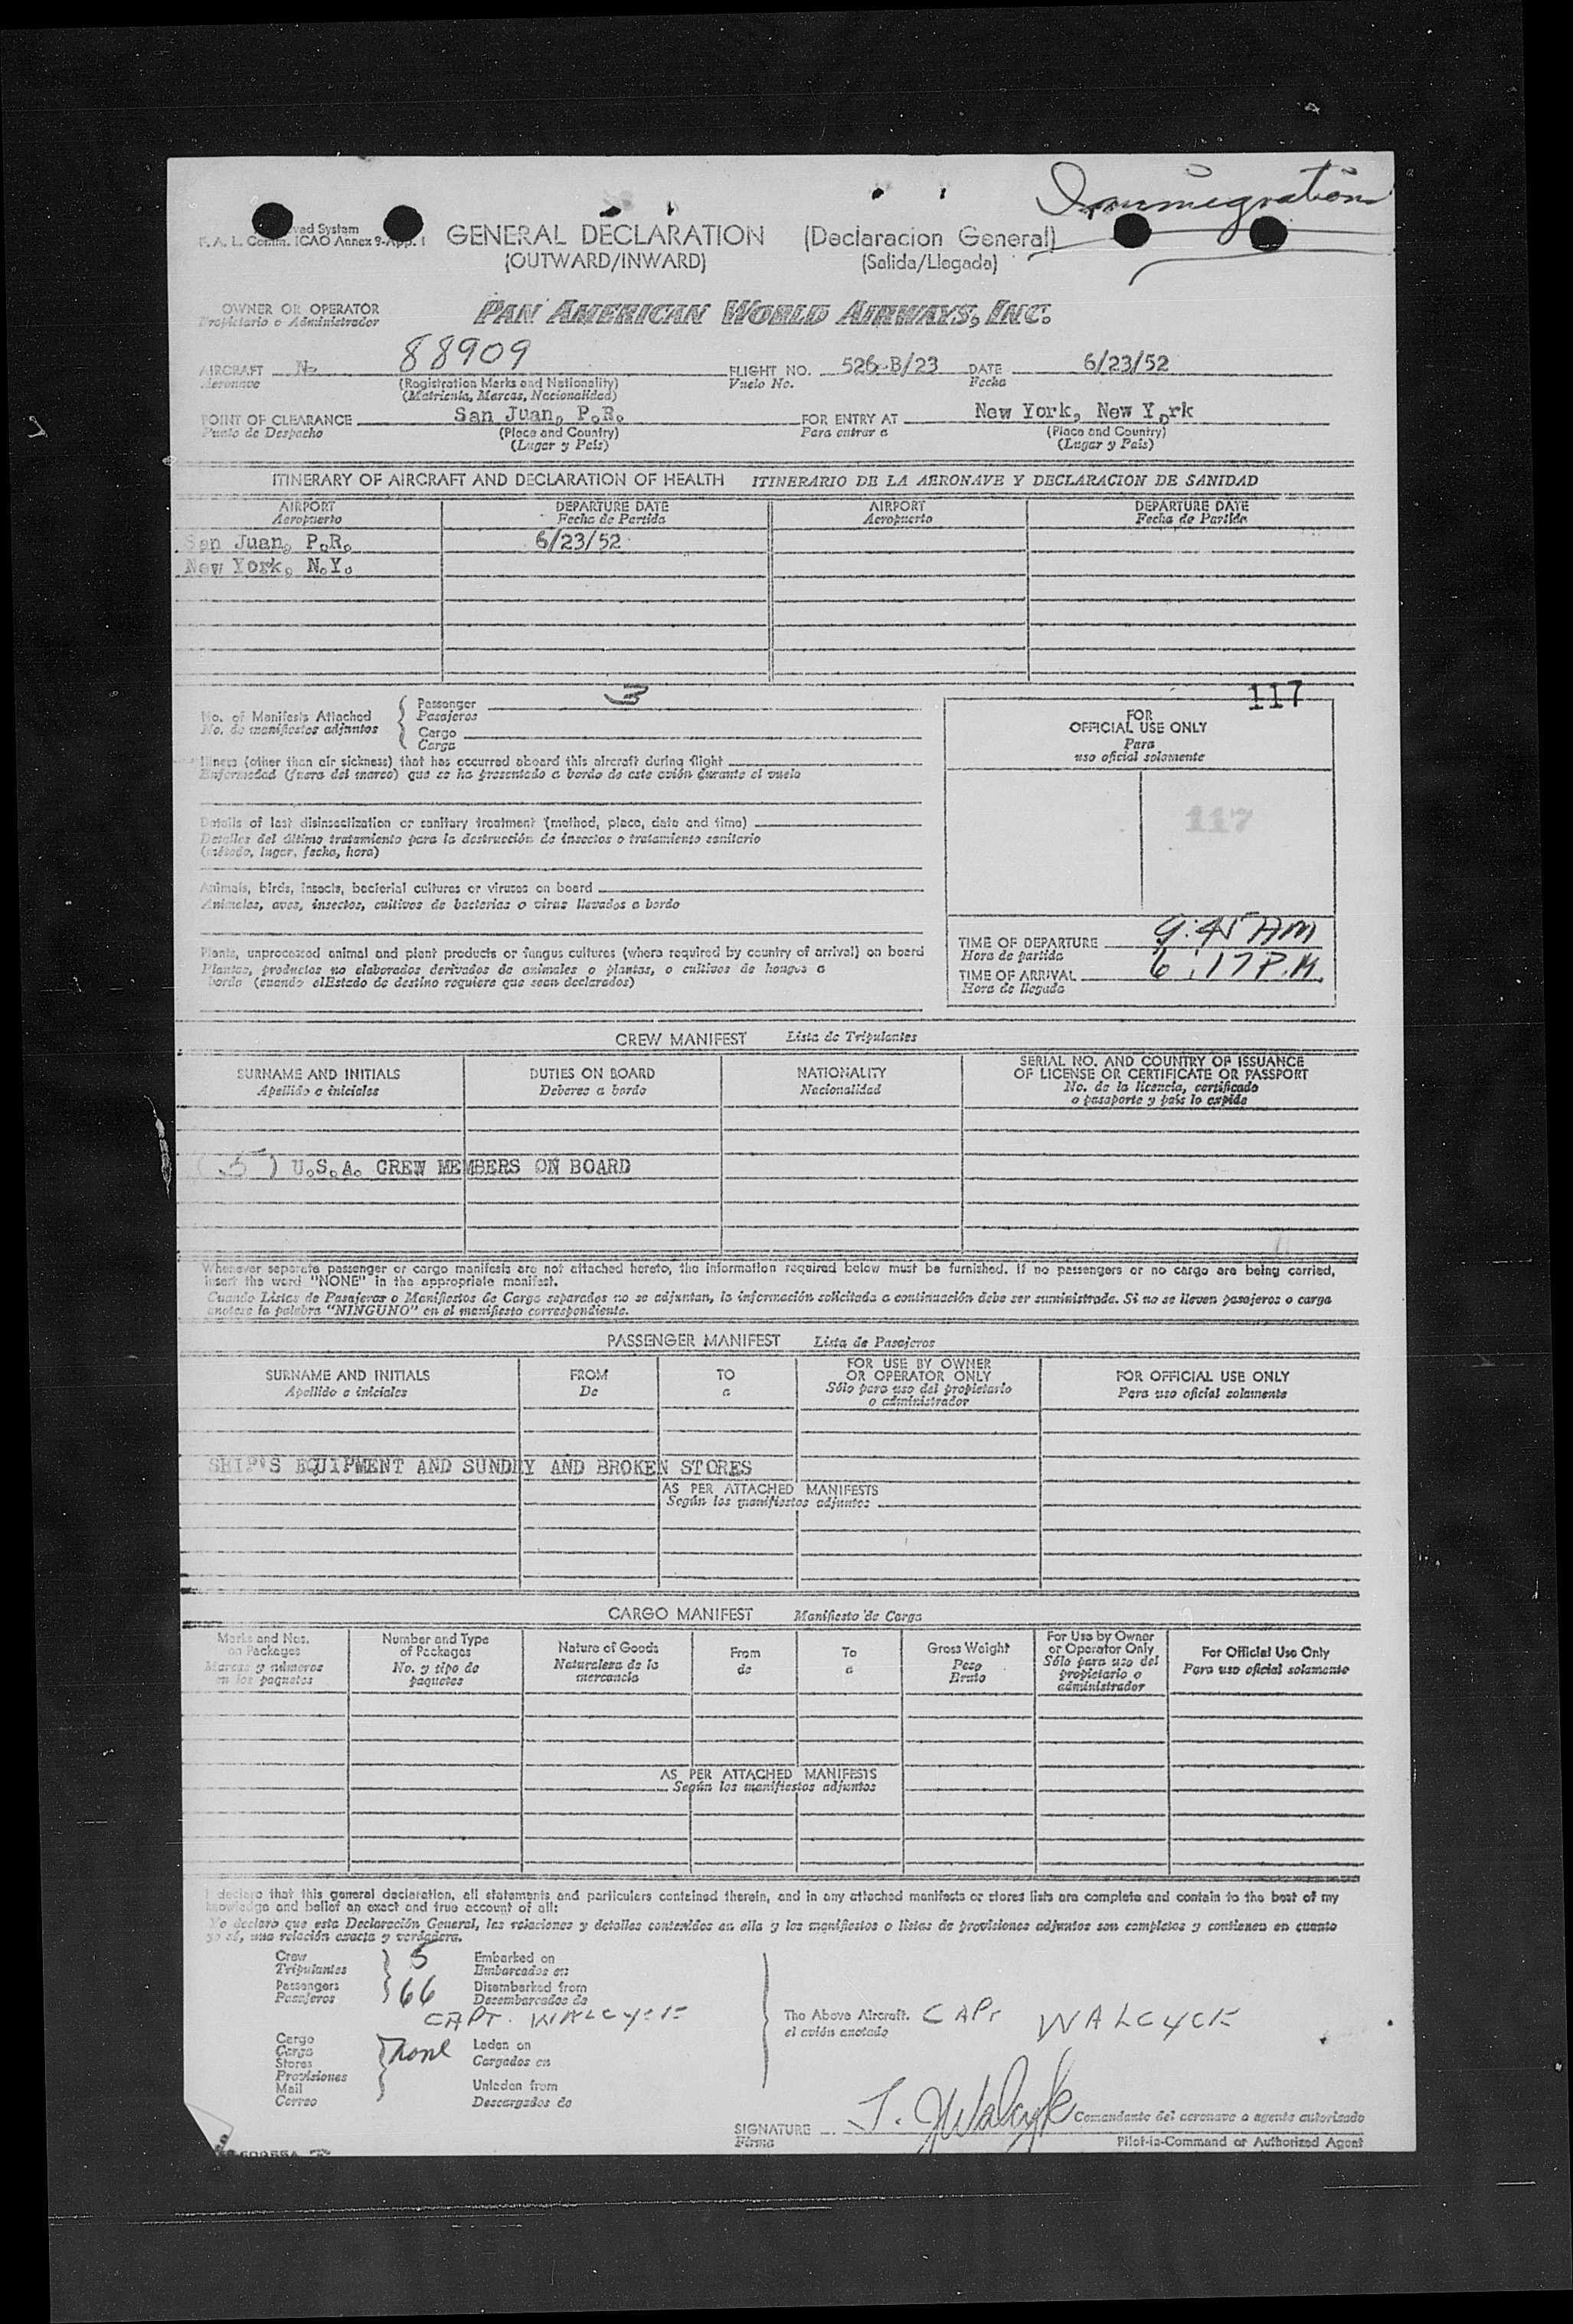 Immigration
ved System
F. A. L. Comm. ICAO Annex 9-App. 1
GENERAL DECLARATION (Declaracion General)
(OUTWARD/INWARD) (Salida/Llegada)
OWNER OR OPERATOR PAN AMERICAN WORLD AIRWAYS, INC.
Propietario o Administrador
AIRCRAFT N- 88909 FLIGHT NO. 526-B/23 DATE 6/23/52
Aeronave (Registration Marks and Nationality) Vuelo No. Fecha
(Matricula, Marcas, Nacionalidad)
POINT OF CLEARANCE San Juan, P.R. FOR ENTRY AT New York, New York
Punto de Despacho (Place and Country) Para entrar a (Place and Country)
(Lugar y País) (Lugar y País)
ITINERARY OF AIRCRAFT AND DECLARATION OF HEALTH ITINERARIO DE LA AERONAVE Y DECLARACION DE SANIDAD
AIRPORT DEPARTURE DATE AIRPORT DEPARTURE DATE
Aeropuerto Fecha de Partida Aeropuerto Fecha de Partida
San Juan, P.R. 6/23/52
New York, N.Y.
117
No. of Manifests Attached Passenger 3
No. de manifiestos adjuntos Pasajeros
Cargo
Carga
FOR
OFFICIAL USE ONLY
Para
uso oficial solamente
Illness (other than air sickness) that has occurred aboard this aircraft during flight
Enfermedad (fuera del mareo) que se ha presentado a bordo de este avión durante el vuelo
117
Details of last disinsectization or sanitary treatment (method, place, date and time)
Detalles del último tratamiento para la destrucción de insectos o tratamiento sanitario
(método, lugar, fecha, hora)
Animals, birds, insects, bacterial cultures or viruses on board
Animales, aves, insectos, cultivos de bacterias o virus llevados a bordo
Plants, unprocessed animal and plant products or fungus cultures (where required by country of arrival) on board
Plantas, productos no elaborados derivados de animales o plantas, o cultivos de hongos a
bordo (cuando elEstado de destino requiere que sean declarados)
TIME OF DEPARTURE 9:45 AM
Hora de partida
TIME OF ARRIVAL 6:17 P.M.
Hora de llegada
CREW MANIFEST Lista de Tripulantes
SURNAME AND INITIALS DUTIES ON BOARD NATIONALITY SERIAL NO. AND COUNTRY OF ISSUANCE
OF LICENSE OR CERTIFICATE OR PASSPORT
Apellido e iniciales Deberes a bordo Nacionalidad No. de la licencia, certificado
o pasaporte y país lo expide
( 5 ) U.S.A. CREW MEMBERS ON BOARD
Whenever separate passenger or cargo manifests are not attached hereto, the information required below must be furnished. If no passengers or no cargo are being carried,
insert the word "NONE" in the appropriate manifest.
Cuando Listas de Pasajeros o Manifiestos de Carga separados no se adjuntan, la información solicitada a continuación debe ser suministrada. Si no se lleven pasajeros o carga
anotese la palabra "NINGUNO" en el manifiesto correspondiente.
PASSENGER MANIFEST Lista de Pasajeros
SURNAME AND INITIALS FROM TO FOR USE BY OWNER OR OPERATOR ONLY FOR OFFICIAL USE ONLY
Apellido e iniciales De a Sólo para uso del propietario o administrador Para uso oficial solamente
SHIP'S EQUIPMENT AND SUNDRY AND BROKEN STORES
AS PER ATTACHED MANIFESTS
Según los manifiestos adjuntos
CARGO MANIFEST Manifiesto de Carga
Marks and Nos. on Packages Number and Type of Packages Nature of Goods From To Gross Weight For Use by Owner or Operator Only For Official Use Only
Marcas y números en los paquetes No. y tipo de paquetes Naturaleza de la mercancia de a Peso Bruto Sólo para uso del propietario o administrador Para uso oficial solamente
AS PER ATTACHED MANIFESTS
Según los manifiestos adjuntos
I declare that this general declaration, all statements and particulars contained therein, and in any attached manifests or stores lists are complete and contain to the best of my
knowledge and belief an exact and true account of all:
Yo declaro que esta Declaración General, las relaciones y detalles contenidos en ella y los manifiestos o listas de provisiones adjuntos son completos y contienen en cuanto
yo sé, una relación exacta y verdadera.
Crew 5 Embarked on
Tripulantes Embarcados en
Passengers 66 Disembarked from
Pasajeros Desembarcados de
CAPT. WALCYCK
The Above Aircraft. CAPT WALCYCK
el avión anotado
Cargo none Laden on
Carga Cargados en
Stores
Provisiones
Mail Unladen from
Correo Descargados de
SIGNATURE Comandante del aeronave o agente autorizado
Firma Pilot-in-Command or Authorized Agent